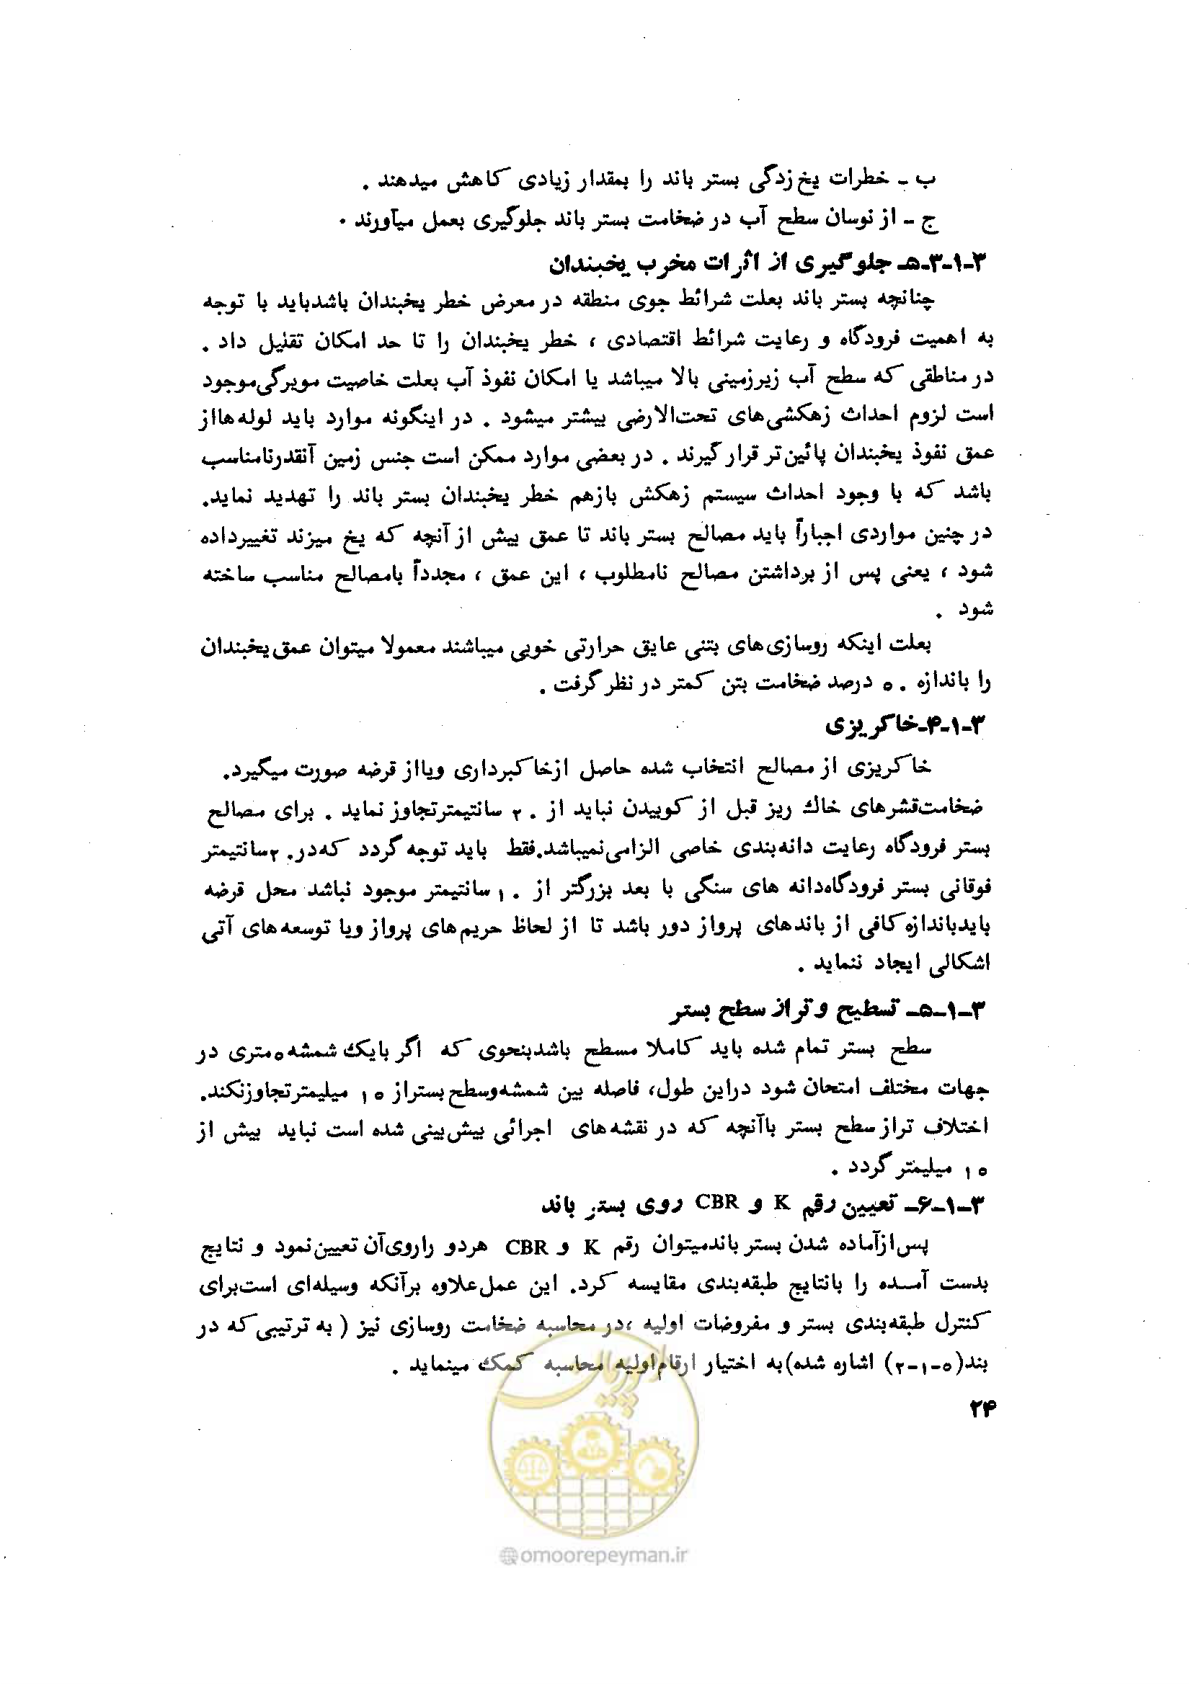 ب ـ خطرات یخ زدگی بستر باند را بمقدار زیادی کاهش میدهند .
ج ـ از نوسان سطح آب در ضخامت بستر باند جلوگیری بعمل میآورند ۰
۳ـ۱ـ۳ـ۵ـ جلوگیری از اثرات مخرب یخبندان
چنانچه بستر باند بعلت شرائط جوی منطقه در معرض خطر یخبندان باشدباید با توجه
به اهمیت فرودگاه و رعایت شرائط اقتصادی ، خطر یخبندان را تا حد امکان تقلیل داد .
در مناطقی که سطح آب زیرزمینی بالا میباشد یا امکان نفوذ آب بعلت خاصیت مویرگی‌موجود
است لزوم احداث زهکشی‌های تحت‌الارضی بیشتر میشود . در اینگونه موارد باید لوله‌هااز
عمق نفوذ یخبندان پائین‌تر قرار گیرند . در بعضی موارد ممکن است جنس زمین آنقدرنامناسب
باشد که با وجود احداث سیستم زهکش بازهم خطر یخبندان بستر باند را تهدید نماید.
در چنین مواردی اجباراً باید مصالح بستر باند تا عمق بیش از آنچه که یخ میزند تغییرداده
شود ، یعنی پس از برداشتن مصالح نامطلوب ، این عمق ، مجدداً بامصالح مناسب ساخته
شود .
بعلت اینکه روسازی‌های بتنی عایق حرارتی خوبی میباشند معمولا میتوان عمق یخبندان
را باندازه ۵۰ درصد ضخامت بتن کمتر در نظر گرفت .
۳ـ۱ـ۴ـخاکریزی
خاکریزی از مصالح انتخاب شده حاصل ازخاکبرداری ویااز قرضه صورت میگیرد.
ضخامت‌قشرهای خاك ریز قبل از کوبیدن نباید از ۲۰ سانتیمترتجاوز نماید . برای مصالح
بستر فرودگاه رعایت دانه‌بندی خاصی الزامی‌نمیباشد.فقط باید توجه گردد که‌در ۲۰سانتیمتر
فوقانی بستر فرودگاه‌دانه های سنگی با بعد بزرگتر از ۱۰ سانتیمتر موجود نباشد محل قرضه
بایدباندازه‌کافی از باندهای پرواز دور باشد تا از لحاظ حریم‌های پرواز ویا توسعه‌های آتی
اشکالی ایجاد ننماید .
۳ـ۱ـ۵ـ تسطیح و تراز سطح بستر
سطح بستر تمام شده باید کاملا مسطح باشدبنحوی که اگر بایك شمشه ۵متری در
جهات مختلف امتحان شود دراین طول، فاصله بین شمشه‌وسطح‌بستراز ۱۵ میلیمترتجاوزنکند.
اختلاف تراز سطح بستر باآنچه که در نقشه‌های اجرائی پیش‌بینی شده است نباید بیش از
۱۵ میلیمتر گردد .
۳ـ۱ـ۶ـ تعیین رقم K و CBR روی بستر باند
پس‌ازآماده شدن بستر باندمیتوان رقم K و CBR هردو راروی‌آن تعیین‌نمود و نتایج
بدست آمده را بانتایج طبقه‌بندی مقایسه کرد. این عمل‌علاوه برآنکه وسیله‌ای است‌برای
کنترل طبقه‌بندی بستر و مفروضات اولیه ،در محاسبه ضخامت روسازی نیز ( به ترتیبی‌که در
بند(۵ـ۱ـ۲) اشاره شده)به اختیار ارقام‌اولیه محاسبه کمك مینماید .
۲۴
امور پیمان
@omoorepeyman.ir